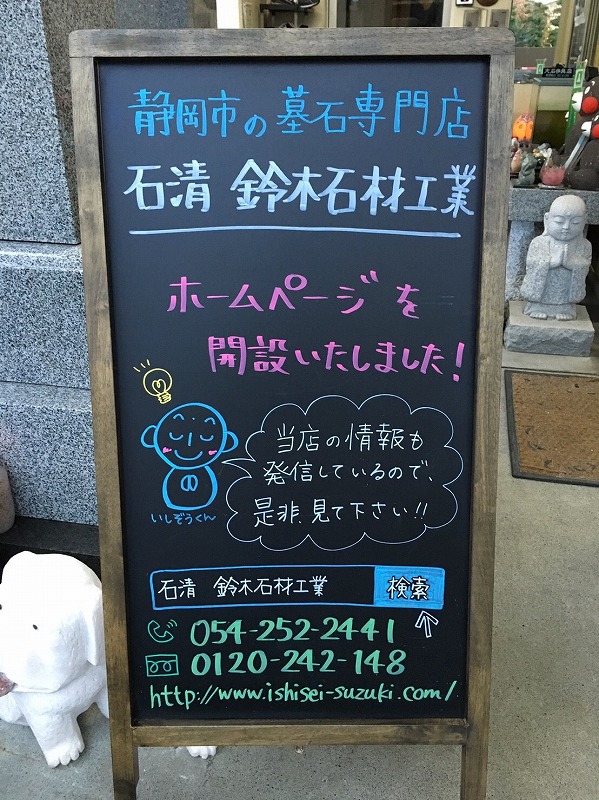 静岡市の墓石専門店
石清 鈴木石材工業
ホームページを
開設いたしました!
当店の情報も
発信しているので、
是非、見て下さい!!
いしぞうくん
石清 鈴木石材工業 検索
054-252-2441
0120-242-148
http://www.ishisei-suzuki.com/